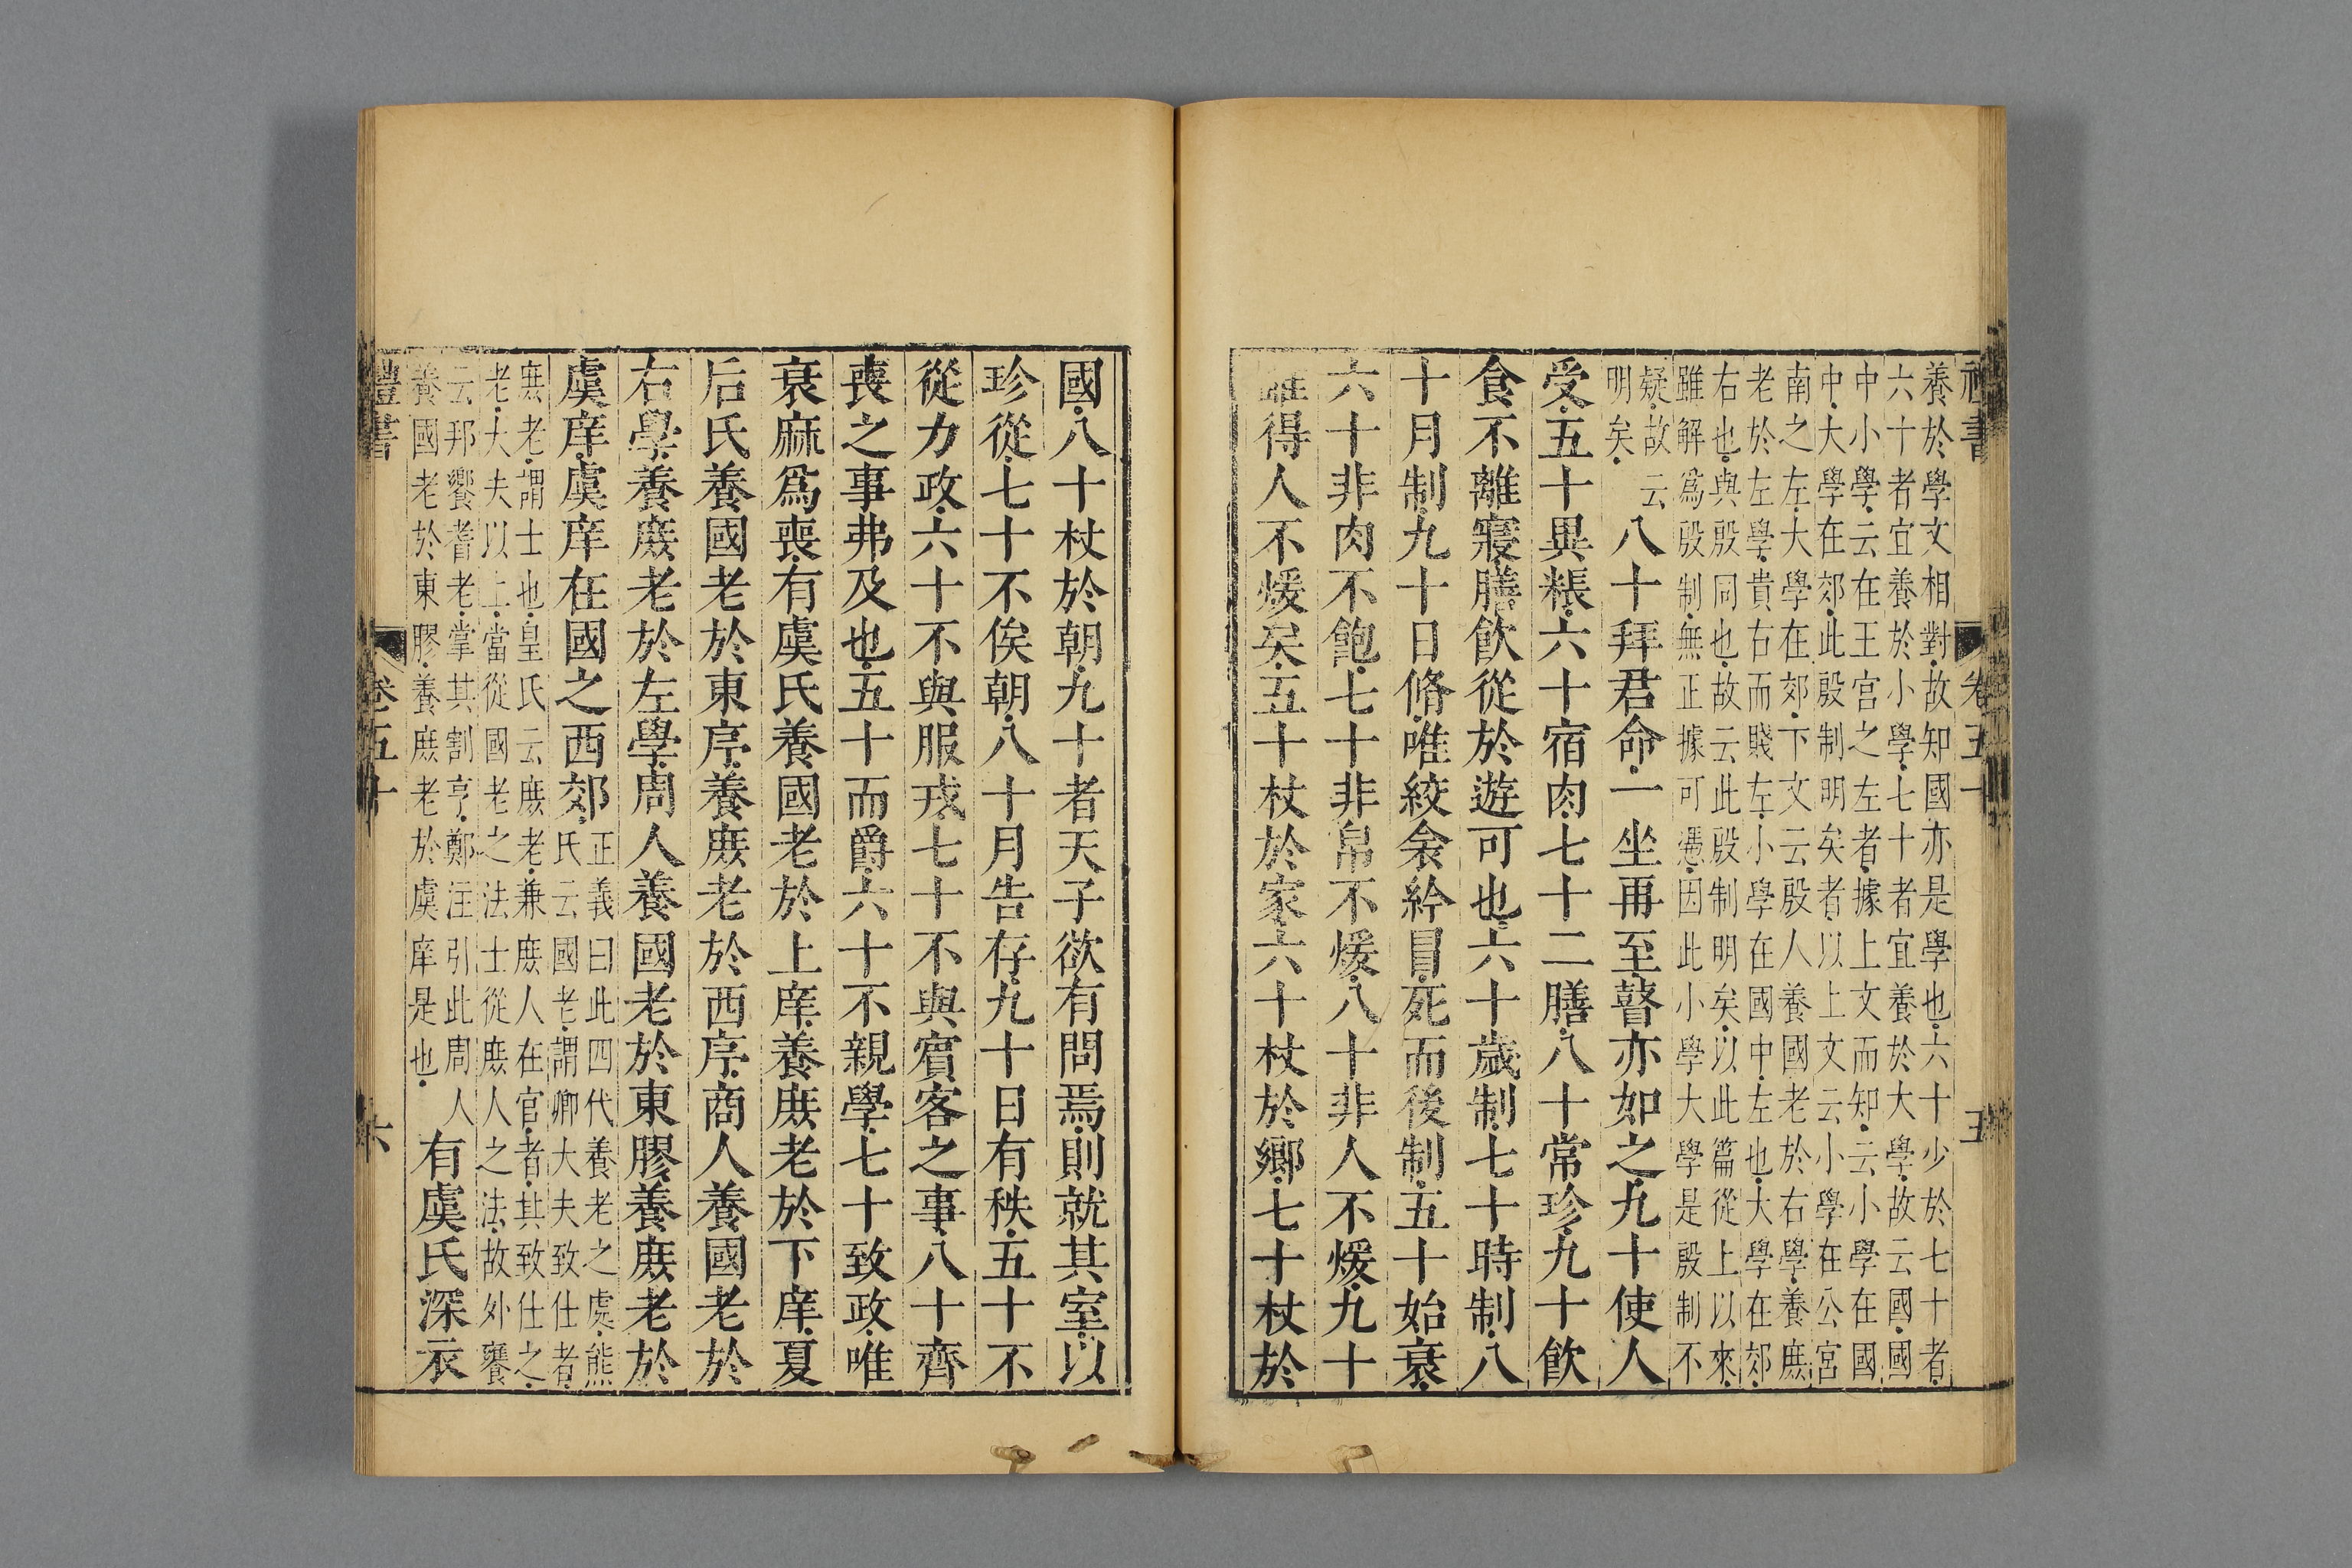 禮書
卷五十
五
養於學文相對故知國亦是學也六十少於七十者
六十者宜養於小學七十者宜養於大學故云國國
中小學云在王宮之左者據上文而知云小學在國
中大學在郊此殷制明矣者以上文云小學在公宮
南之左大學在郊下文云殷人養國老於右學養庶
老於左學貴右而賤左小學在國中左也大學在郊
右也與殷同也故云此殷制明矣以此篇從上以來
雖解爲殷制無正據可憑因此小學大學是殷制不
疑故云
明矣
八十拜君命一坐再至瞽亦如之九十使人
受五十異粻六十宿肉七十二膳八十常珍九十飲
食不離寢膳飲從於遊可也六十歲制七十時制八
十月制九十日脩唯絞衾紟冒死而後制五十始衰
六十非肉不飽七十非帛不煖八十非人不煖九十
雖得人不煖矣五十杖於家六十杖於鄉七十杖於
國八十杖於朝九十者天子欲有問焉則就其室以
珍從七十不俟朝八十月告存九十日有秩五十不
從力政六十不與服戎七十不與賓客之事八十齊
喪之事弗及也五十而爵六十不親學七十致政唯
衰麻爲喪有虞氏養國老於上庠養庶老於下庠夏
后氏養國老於東序養庶老於西序商人養國老於
右學養庶老於左學周人養國老於東膠養庶老於
虞庠虞庠在國之西郊
正義曰此四代養老之處熊
氏云國老謂卿大夫致仕者
庶老謂士也皇氏云庶老兼庶人在官者其致仕之
老大夫以上當從國老之法士從庶人之法故外饔
云邦饗耆老掌其割亨鄭注引此周人
養國老於東膠養庶老於虞庠是也
有虞氏深衣
禮書
卷五十
六